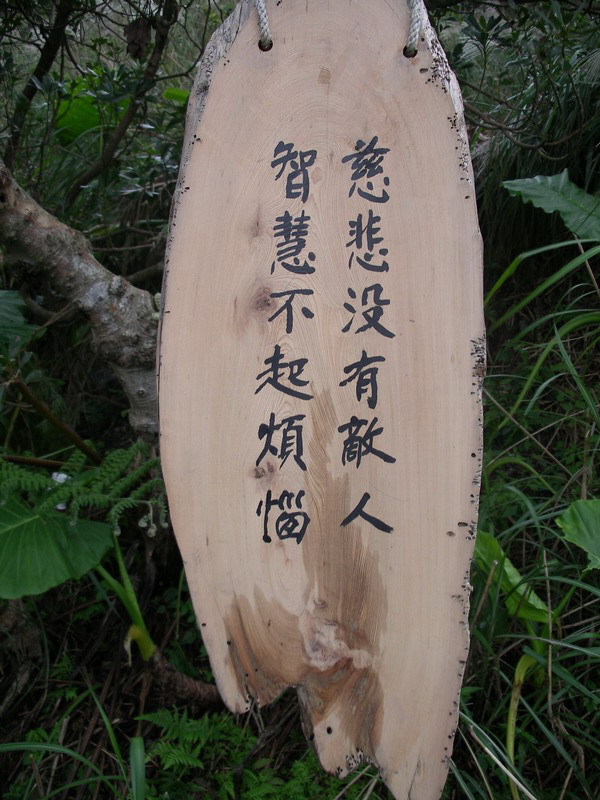 慈悲没有敵人
智慧不起煩惱